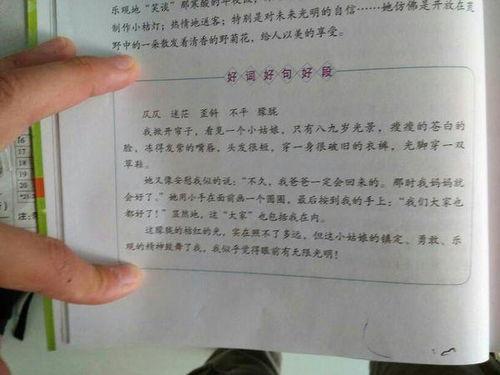 乐观地“笑谈”那寒酸的年夜饭
制作小桔灯；热情地送客；特别是对未来光明的自信……她仿佛是开放在荒
野中的一朵散发着清香的野菊花，给人以美的享受。
好词好句好段
仄仄 迷茫 歪斜 不平 朦胧
我掀开帘子，看见一个小姑娘，只有八九岁光景，瘦瘦的苍白的
脸，冻得发紫的嘴唇，头发很短，穿一身很破旧的衣裤，光脚穿一双
草鞋。
她又像安慰我似的说：“不久，我爸爸一定会回来的。那时我妈妈就
会好了。”她用小手在面前画一个圆圈，最后按到我的手上：“我们大家也
都好了！”显然地，这“大家”也包括我在内。
这朦胧的桔红的光，实在照不了多远，但这小姑娘的镇定、勇敢、乐
观的精神鼓舞了我，我似乎觉得眼前有无限光明！
16
17
18
19
20